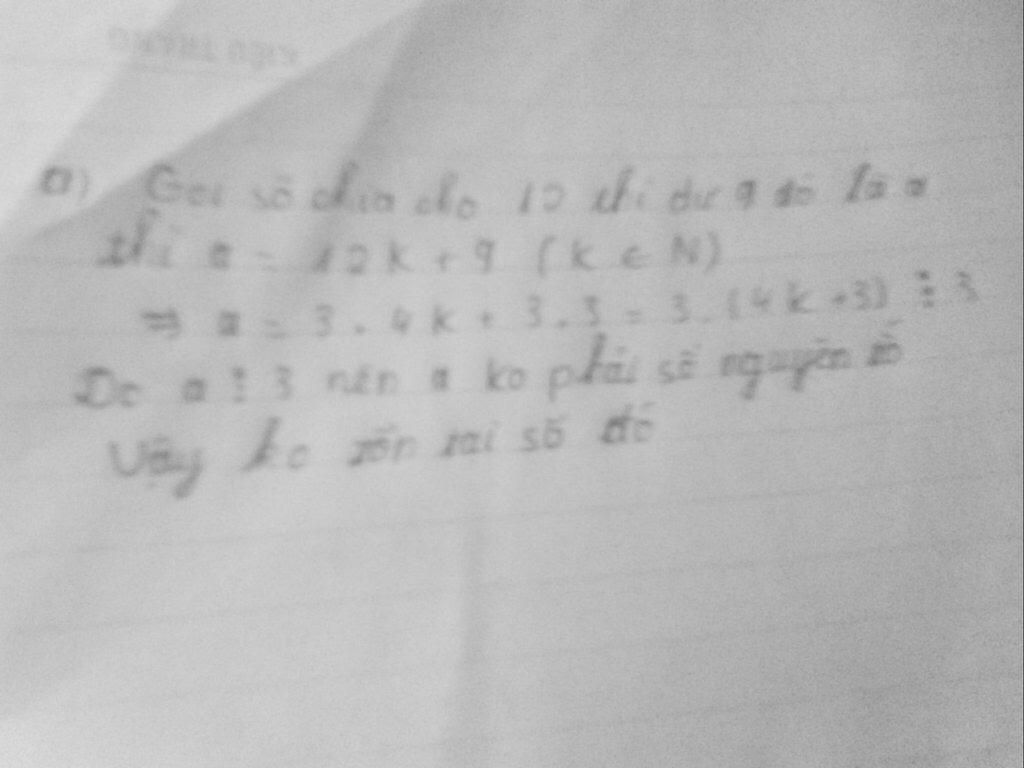 KIỀU TRANG
a) Gọi số chia cho 12 thì dư 9 đó là a
thì a = 12k + 9 (k ∈ N)
=> a = 3.4k + 3.3 = 3.(4k+3) ⋮ 3
Do a ⋮ 3 nên a ko phải số nguyên tố
Vậy ko tồn tại số đó